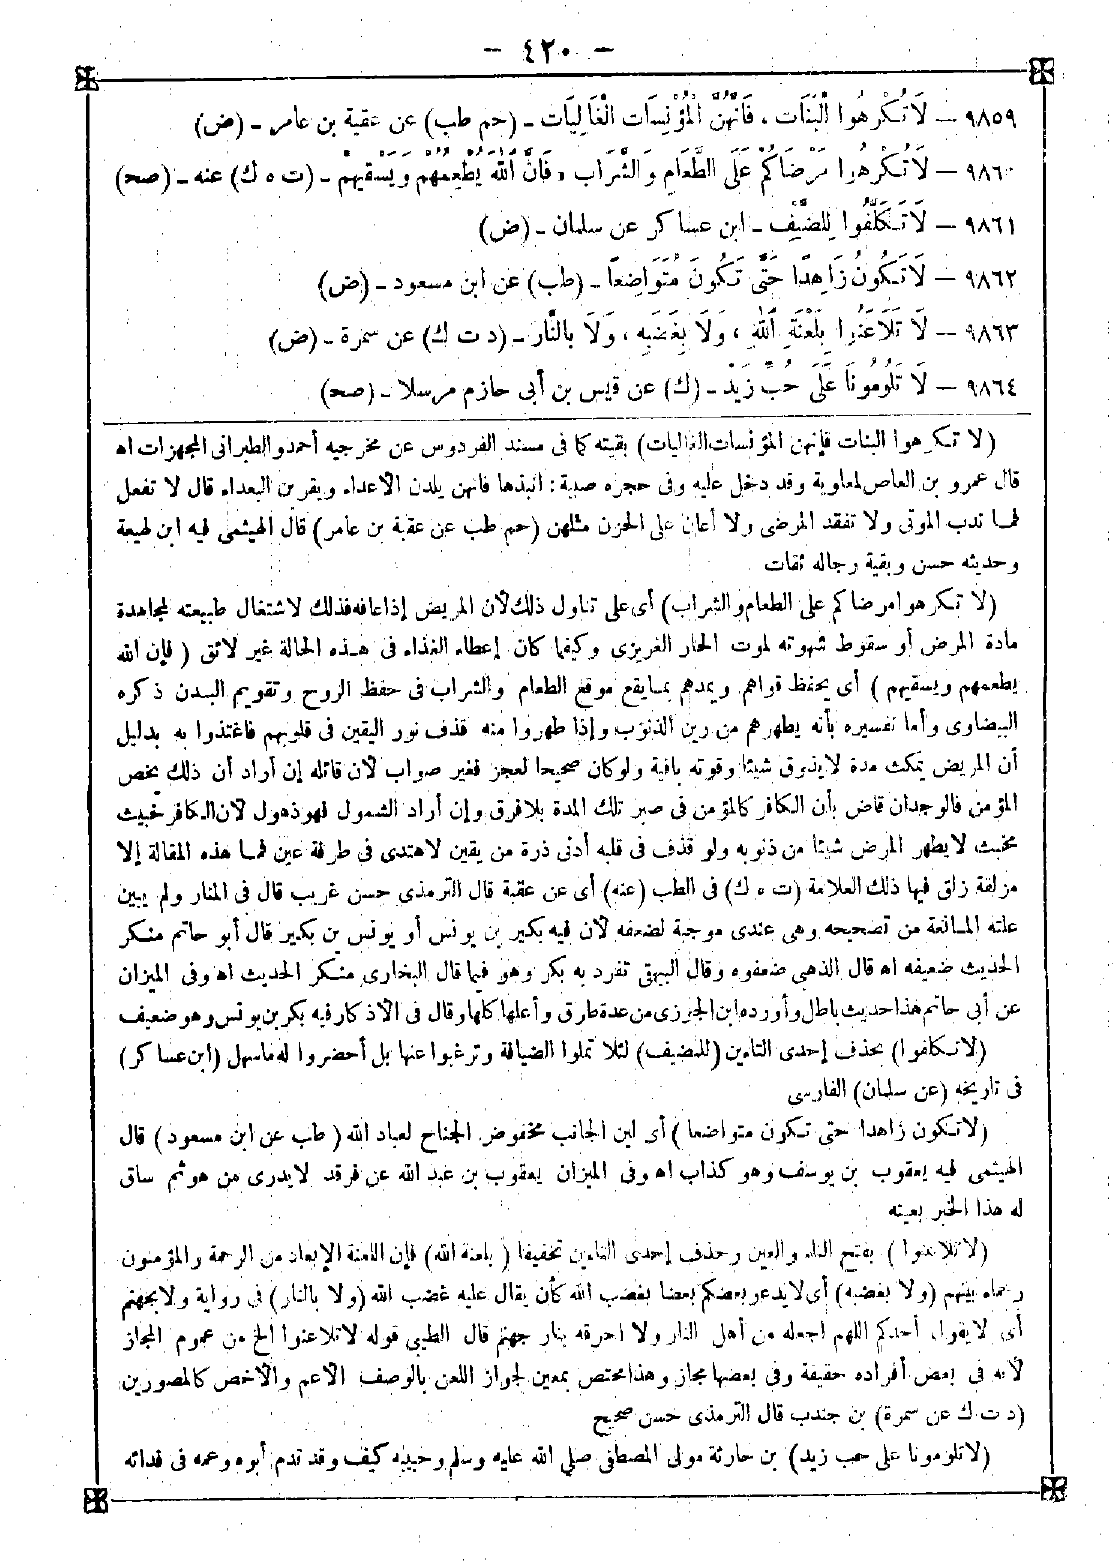 - ٤٢٠ -
٩٨٥٩ - لَا تُكْرِهُوا الْبَنَاتِ ، فَإِنَّهُنَّ الْمُؤْنِسَاتُ الْغَالِيَاتُ - (حم طب) عن عقبة بن عامر - (ض)
٩٨٦٠ - لَا تُكْرِهُوا مَرْضَاكُمْ عَلَى الطَّعَامِ وَالشَّرَابِ ، فَإِنَّ اللهَ يُطْعِمُهُمْ وَيَسْقِيهِمْ - (ت ه ك) عنه - (صح)
٩٨٦١ - لَا تَكَلَّفُوا لِلضَّيْفِ - ابن عساكر عن سلمان - (ض)
٩٨٦٢ - لَا تَكُونُ زَاهِدًا حَتَّى تَكُونَ مُتَوَاضِعًا - (طب) عن ابن مسعود - (ض)
٩٨٦٣ - لَا تَلَاعَنُوا بِلَعْنَةِ اللهِ ، وَلَا بِغَضَبِهِ ، وَلَا بِالنَّارِ - (د ت ك) عن سمرة - (ض)
٩٨٦٤ - لَا تَلُومُونَا عَلَى حُبِّ زَيْدٍ - (ك) عن قيس بن أبى حازم مرسلا - (صح)
(لا تكرهوا البنات فإنهن المؤنسات الغاليات) بقيته كما فى مسند الفردوس عن مخرجيه أحمد والطبرانى المجهزات اه
قال عمرو بن العاص لمعاوية وقد دخل عليه وفى حجره صبية : انبذها فانهن يلدن الاعداء ويقربن البعداء قال لا تفعل
فما ندب الموتى ولا تفقد المرضى ولا أعان على الحزن مثلهن (حم طب عن عقبة بن عامر) قال الهيثمى فيه ابن لهيعة
وحديثه حسن وبقية رجاله ثقات
(لا تكرهوا مرضاكم على الطعام والشراب) أى على تناول ذلك لأن المريض إذا عافه فذلك لاشتغال طبيعته لمجاهدة
مادة المرض أو سقوط شهوته لموت الحار الغريزى وكيفما كان إعطاء الغذاء فى هذه الحالة غير لائق ( فإن الله
يطعمهم ويسقيهم ) أى يحفظ قواهم ويمدهم بما يقع موقع الطعام والشراب فى حفظ الروح وتقويم البدن ذكره
البيضاوى وأما تفسيره بأنه يطهرهم من رين الذنوب وإذا طهروا منه قذف نور اليقين فى قلوبهم فاغتذوا به بدليل
أن المريض يمكث مدة لا يذوق شيئا وقوته باقية ولو كان صحيحا لعجز فغير صواب لأن قائله إن أراد أن ذلك يخص
المؤمن فالوجدان قاض بأن الكافر كالمؤمن فى صبر تلك المدة بلا فرق وإن أراد الشمول فهو ذهول لأن الكافر خبيث
مخبث لا يطهر المرض شيئا من ذنوبه ولو قذف فى قلبه أدنى ذرة من يقين لاهتدى فى طرفة عين فما هذه المقالة إلا
مزلقة زلق فيها ذلك العلامة (ت ه ك) فى الطب (عنه) أى عن عقبة قال الترمذى حسن غريب قال فى المنار ولم يبين
علته المانعة من تصحيحه وهى عندى موجبة لضعفه لأن فيه بكير بن يونس أو يونس بن بكير قال أبو حاتم منكر
الحديث ضعيفه اه قال الذهبى ضعفوه وقال البيهقى تفرد به بكر وهو فيما قال البخارى منكر الحديث اه وفى الميزان
عن أبى حاتم هذا حديث باطل وأورده ابن الجوزى من عدة طرق وأعلها كلها وقال فى الأذكار فيه بكر بن يونس وهو ضعيف
(لا تكلفوا) بحذف إحدى التاءين (للضيف) لئلا تملوا الضيافة وترغبوا عنها بل أحضروا له ما سهل (ابن عساكر)
فى تاريخه (عن سلمان) الفارسى
(لا تكون زاهدا حتى تكون متواضعا) أى لين الجانب مخفوض الجناح لعباد الله ( طب عن ابن مسعود ) قال
الهيثمى فيه يعقوب بن يوسف وهو كذاب اه وفى الميزان يعقوب بن عبد الله عن فرقد لا يدرى من هو ثم ساق
له هذا الخبر بعينه
(لا تلاعنوا ) بفتح التاء والعين وحذف إحدى التاءين تخفيفا ( بلعنة الله) فإن اللعنة الإبعاد من الرحمة والمؤمنون
رحماء بينهم (ولا بغضبه) أى لا يدعو بعضكم بعضا بغضب الله كأن يقال عليه غضب الله (ولا بالنار) فى رواية ولا بجهنم
أى لا يقول أحدكم اللهم اجعله من أهل النار ولا احرقه بنار جهنم قال الطيبى قوله لا تلاعنوا الخ من عموم المجاز
لأنه فى بعض أفراده حقيقة وفى بعضها مجاز وهذا مختص بمعين لجواز اللعن بالوصف الاعم والاخص كالمصورين
(د ت ك عن سمرة) بن جندب قال الترمذى حسن صحيح
(لا تلومونا على حب زيد) بن حارثة مولى المصطفى صلى الله عليه وسلم وحبيبه كيف وقد قدم أبوه وعمه فى فدائه